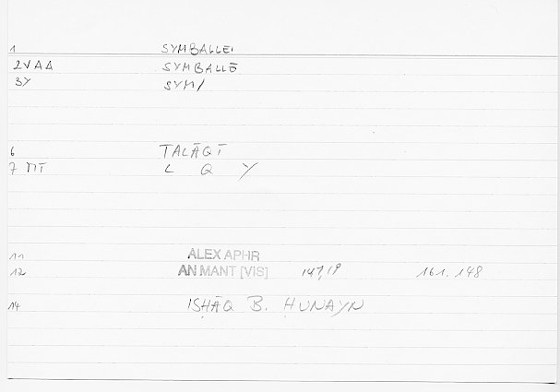 1 SYMBALLEI
2VAA SYMBALLŌ
3Y SYM/
6 TALĀQI
7 MT L Q Y
11 ALEX APHR
12 AN MANT [VIS] 147,19 161.148
14 ISḤĀQ B. ḤUNAYN